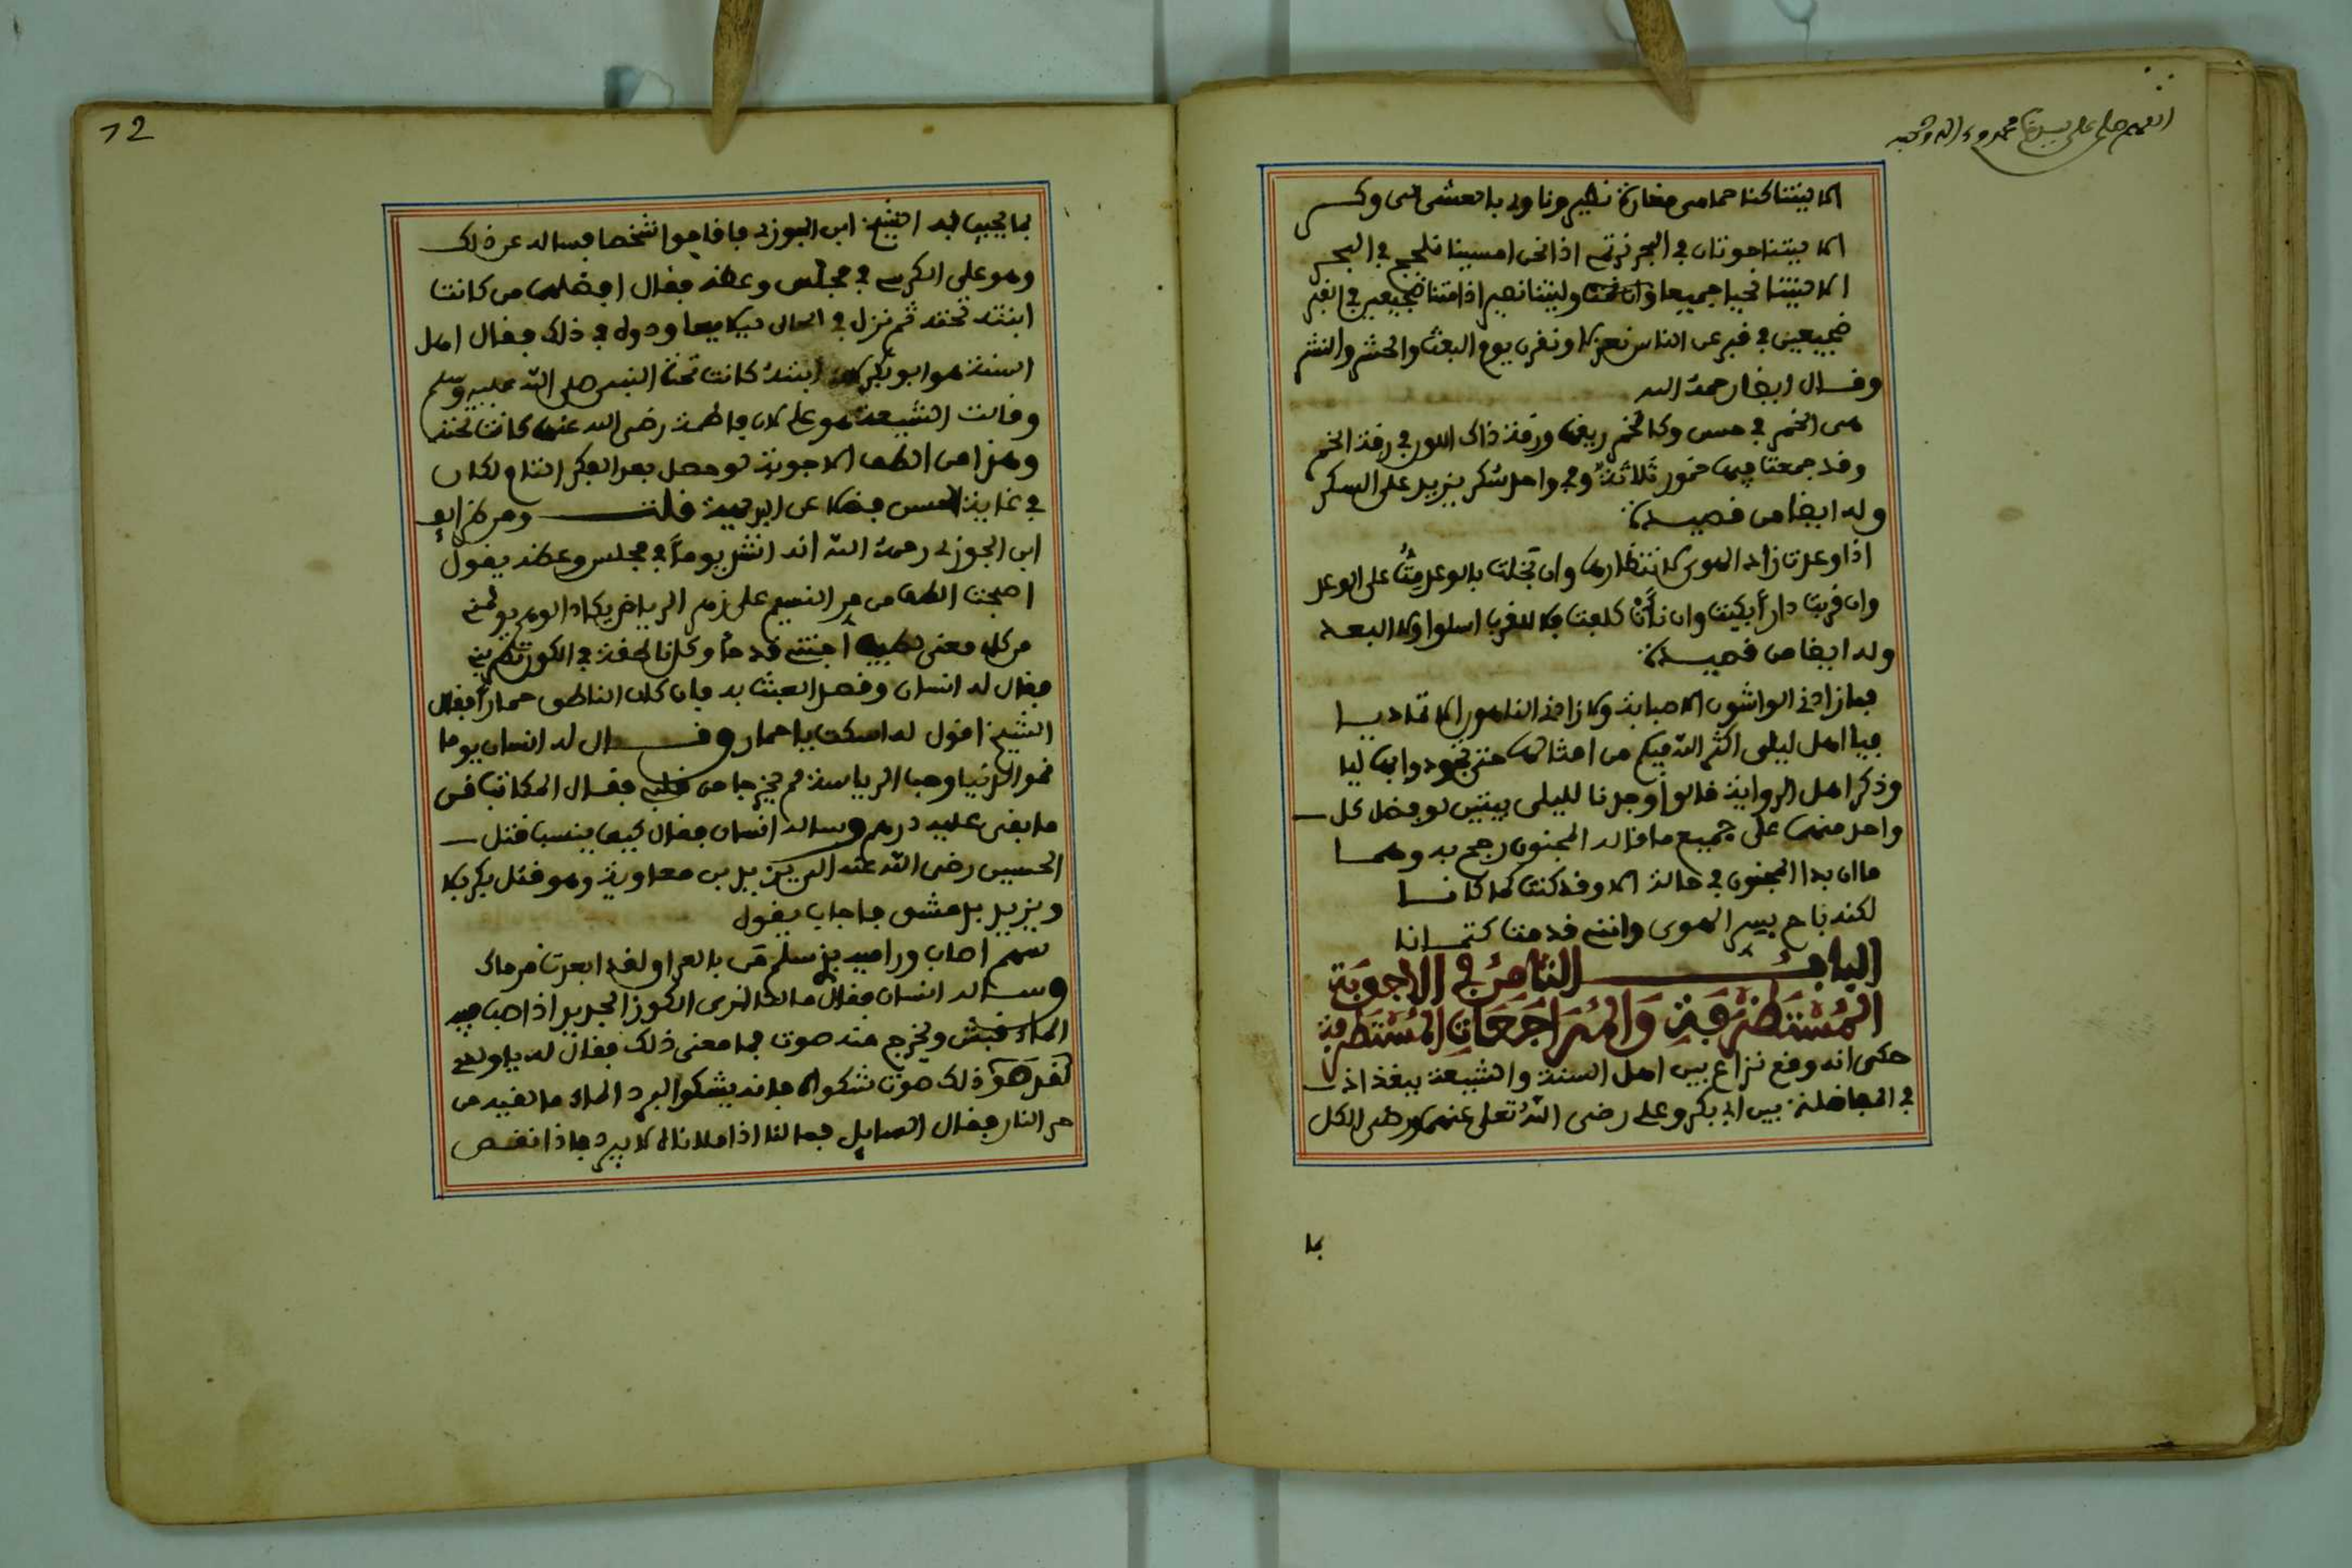 اللهم صل على سيدنا محمد وءاله وصحبه
الا ليتنا كنا حمامي مفازة نطير وناوي بالعشي الى وكر
الا ليتنا حوتان في البحر نرتمي اذا نحن امسينا نلجج في البحر
الا ليتنا نحيا جميعا وليتنا نصير اذا متنا ضجيعين في القبر
ضجيعين في قبر عن الناس معزل ونقرن يوم البعث والحشر والنشر
وقال ايضا رحمه الله
هي الخمر في حسن وكالخمر ريقها ورقة ذاك اللون في رقة الخمر
وقد جمعت فيها خمور ثلاثة وفي واحد سكر يزيد على السكر
وله ايضا من قصيدة
اذا وعدت زاد الهوى لانتظارها وان بخلت بالوعد مت على الوعد
وان قربت دارا بكيت وان نأت كلفت فلا للقرب اسلوا ولا البعد
وله ايضا من قصيدة
فما زادني الواشون الا صبابة ولا زادني الناهون الا تماديا
فيا اهل ليلى اكثر الله فيكم من امثالها حتى تجودوا بها ليا
وذكر اهل الرواية قالوا وجدنا لليلى بيتين لو فضل كل
واحد منهما على جميع ما قاله المجنون رجح به وهما
ما ان بدا المجنون في حالة الا وقد كنت كما كانا
لكنه باح بسر الهوى وانني قد مت كتمانا
الباب الثامن في الاجوبة
المستظرفة والمراجعات المستطرفة
حكى انه وقع نزاع بين اهل السنة والشيعة ببغداذ
في المفاضلة بين ابي بكر وعلي رضي الله تعلى عنهما ورضي الكل
بما
12
بما يجيب به الشيخ ابن الجوزي فاقاموا شخصا فساله عن ذلك
وهو على الكرسي في مجلس وعظه فقال افضلهما من كانت
ابنته تحته ثم نزل في الحال ليلا يعاودوه في ذلك فقال اهل
السنة هو ابو بكر ابنته كانت تحت النبي صلى الله عليه وسلم
وقالت الشيعة هو علي لان فاطمة رضي الله عنها كانت تحته
وهذا من الطف الاجوبة لو حصل بعد الفكر التام لكان
في غاية الحسن فضلا عن البديهة قلت ومن لطائف
ابن الجوزي رحمه الله انه انشد يوما في مجلس وعظه يقول
اصبحت الطف من مر النسيم على زهر الرياض يكاد الوهم يولمني
من كل معنى لطيف اجتني قدحا وكل ناطقة في الكون تطربني
فقال له انسان وقصد العبث به فان كان الناطق حمارا فقال
الشيخ اقول له اسكت يا حمار وقال له انسان يوما
نحو الدنيا وحب الرياسة لم يخرجا من قلبي فقال المكاتب قن
ما بقي عليه درهم وساله انسان فقال كيف ينسب قتل
الحسين رضي الله عنه الى يزيد بن معاوية وهو قتل بكربلا
ويزيد بدمشق فاجاب يقول
سهم اصاب وراميه بذي سلم من بالعراق لقد ابعدت مرماك
وساله انسان فقال ما لنا نرى الكوز الجديد اذا صب فيه
الماء نش ويخرج منه صوت فما معنى ذلك فقال له يا ولدي
ذلك صوت شكواه فانه يشكوا لبرد الماء ما لقيه من
حر النار فقال السايل فما لنا اذا ملاناه لا يبرد فاذا نقص